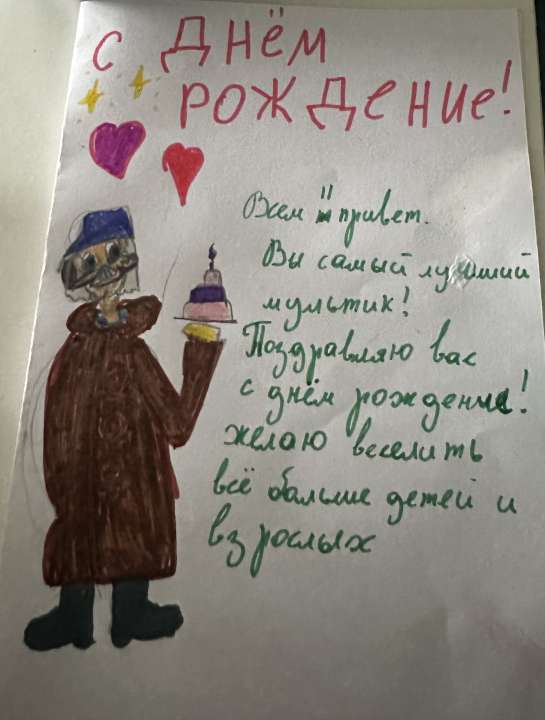 С ДНЁМ
РОЖДЕНИЕ!
Всем "привет.
Вы самый лучший
мультик!
Поздравляю вас
с днём рождение!
желаю веселить
всё больше детей и
взрослых